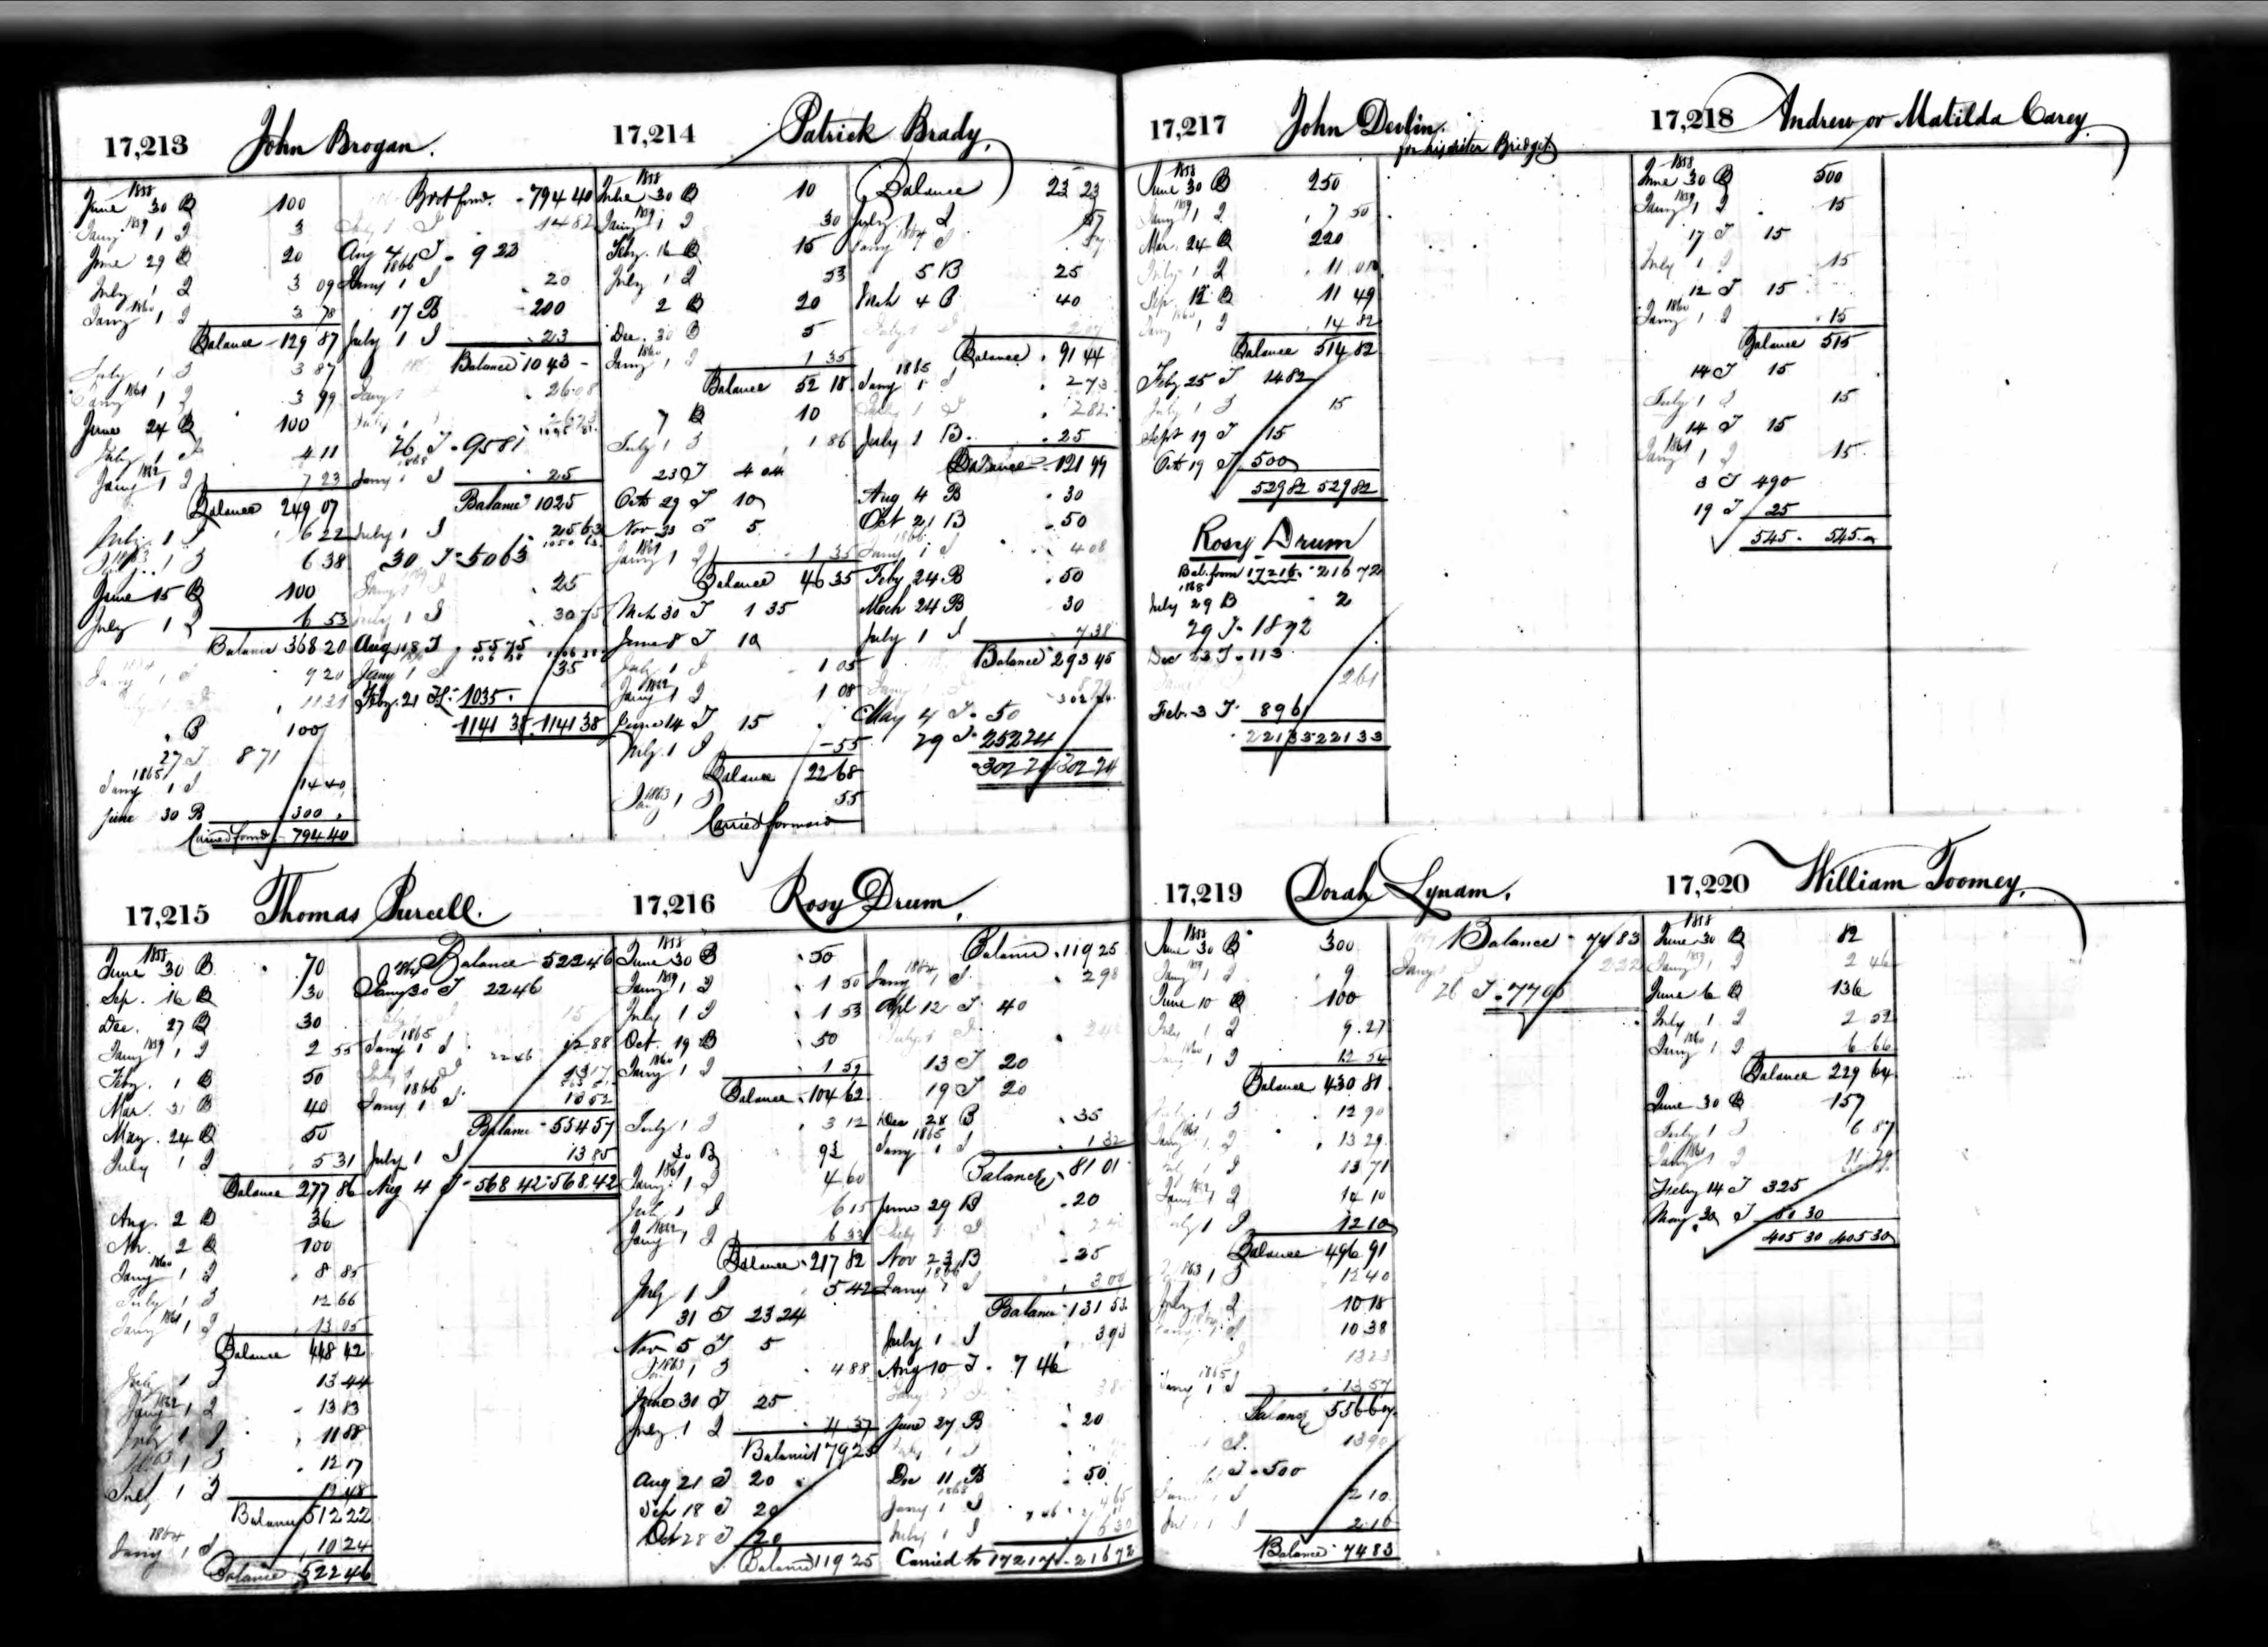 17,213 John Brogan.
1858
June 30 B 100
Jany 1859 1 I 3
June 29 B 20
July 1 I 3 09
Jany 1860 1 I 3 78
Balance 129 87
July 1 I 3 87
1861 1 I 3 99
June 24 B 100
July 1 I 4 11
Jany 1862 1 I 7 23
Balance 249 07
July 1 I 6 22
1863 1 I 6 38
June 15 B 100
July 1 I 6 53
Balance 368 20
9 20
11 31
B 100
27 T 8 71
1865
Jany 1 I 14 40
June 30 B 300
Carried forwd 794 40
Brot forwd. 794 40
July 1 I 14 82
Aug 4 T 9 23
1866
Jany 1 I 20
17 B 200
July 1 I 23
Balance 1043 -
Jany 26 08
July 1 26 73
26 T 95 81
1868
Jany 1 I 25
Balance 1025
July 1 I 25 63
30 T 50 63
25
July 1 I 30 75
Aug 18 T 55 75
Jany 1 I 35
Feby. 21 1035.
1141 38 1141 38
17,214 Patrick Brady,
1858
June 30 B 10
Jany 1859 1 I 30
Feby. 16 B 15
July 1 I 53
2 B 20
Dec. 30 B 5
Jany 1860 1 I 1 35
Balance 52 18
7 B 10
July 1 I 1 86
23 T 4 04
Oct 29 T 10
Nov 30 T 5
Jany 1861 1 I 1 35
Balance 46 35
Mch 30 T 1 35
June 8 T 10
July 1 I 1 05
Jany 1862 1 I 1 08
June 14 T 15
July 1 I 55
Balance 22 68
1863 1 I 55
Carried forward
Balance 23 23
July 1 I 57
Jany 1864 I 57
5 B 25
Mch 4 B 40
July 1 2 07
Balance 91 44
1865
Jany 1 I 2 73
July 1 I 2 82
July 1 B. 25
Balance 121 99
Aug 4 B 30
Oct 21 B 50
1866
Jany 1 I 4 08
Feby 24 B 50
Mch 24 B 30
July 1 I 7 38
Balance 293 45
8 79
302 24
May 4 T 50
29 T 252 24
302 24 302 24
17,215 Thomas Purcell.
1858
June 30 B 70
Sep. 16 B 30
Dec. 27 B 30
Jany 1859 1 I 2 55
Feby. 1 B 50
Mar. 31 B 40
May. 24 B 50
July 1 I 5 31
Balance 277 86
Aug. 2 B 36
2 B 100
Jany 1860 1 I 8 85
July 1 I 12 66
Jany 1861 1 I 13 05
Balance 448 42
July 1 I 13 44
Jany 1862 1 I 13 83
July 1 I 11 88
1863 1 I 12 17
July 1 I 12 48
Balance 512 22
1864
Jany 1 I 10 24
Balance 522 46
Balance 522 46
1864
Jany 30 T 22 46
15
1865
Jany 1 I 12 88
July 1 I 13 17
1866
Jany 1 I 13 52
Balance 554 57
July 1 I 13 85
Aug 4 T 568 42 568 42
17,216 Rosy Drum,
1858
June 30 B 50
Jany 1859 1 I 1 50
July 1 I 1 53
Oct. 19 B 50
Jany 1860 1 I 1 59
Balance 104 62
July 1 I 3 12
30 B 93
Jany 1861 1 I 4 60
July 1 I 6 15
Jany 1862 1 I 6 33
Balance 217 82
July 1 I 5 42
31 T 23 24
Nov 5 T 5
1863 1 I 4 88
June 30 T 25
July 1 I 4 37
Balance 179 25
Aug 21 T 20
Sep 18 T 20
Oct 28 T 20
Balance 119 25
Balance 119 25
1864
Jany 1 I. 2 98
Apl 12 T 40
July 1 I
13 T 20
19 T 20
Dec 28 B 35
1865
Jany 1 I 1 32
Balance 81 01
June 29 B 20
July 1 I
Nov 23 B 25
1866
Jany 1 I 3 00
Balance 131 53
July 1 I 3 93
Aug 10 T 7 46
June 27 B 20
Dec 11 B 50
1868
Jany 1 I 4 65
July 1 I 6 30
Carried to 17217 216 72
17,217 John Devlin.
for his sister Bridget
1858
June 30 B 250
Jany 1859 1 I 7 50
Mar. 24 B 220
July 1 I 11 01
Sep. 12 B 11 49
Jany 1860 1 I 14 82
Balance 514 82
Feby 25 T 14 82
July 1 I 15
Sept 19 T 15
Oct 19 T 500
529 82 529 82
Rosy Drum
Bal. from 17216. 216 72
1868
July 29 B 2
29 T 18 72
Dec 23 T 113
2 61
Feb. 3 T 89 61
221 33 221 33
17,218 Andrew or Matilda Carey
1858
June 30 B 500
Jany 1859 1 I 15
17 T 15
July 1 I 15
12 T 15
Jany 1860 1 I 15
Balance 515
14 T 15
July 1 I 15
14 T 15
Jany 1861 1 I 15
3 T 490
19 T 25
545 545
17,219 Dorah Lynam.
1858
June 30 B 300
Jany 1859 1 I 9
June 10 B 100
July 1 I 9.27
Jany 1860 1 I 12 54
Balance 430 81
July 1 I 12 90
1861 1 I 13 29
July 1 I 13 71
Jany 1862 1 I 14 10
July 1 I 12 10
Balance 496 91
1863 1 I 12 40
July 1 I 10 18
10 38
13 23
1865
Jany 1 I 13 57
Balance 556 67
I. 13 90
T 500
Jany 1 I 2 10
July 1 I 2 16
Balance 74 83
Balance 74 83
Jany 2 22
26 T 77 05
17,220 William Toomey,
1858
June 30 B 82
Jany 1859 1 I 2 46
June 6 B 136
July 1 I 2 52
Jany 1860 1 I 6 66
Balance 229 64
June 30 B 157
July 1 I 6 87
Jany 1861 1 I 11 79
Feby 14 T 325
May 30 T 80 30
405 30 405 30